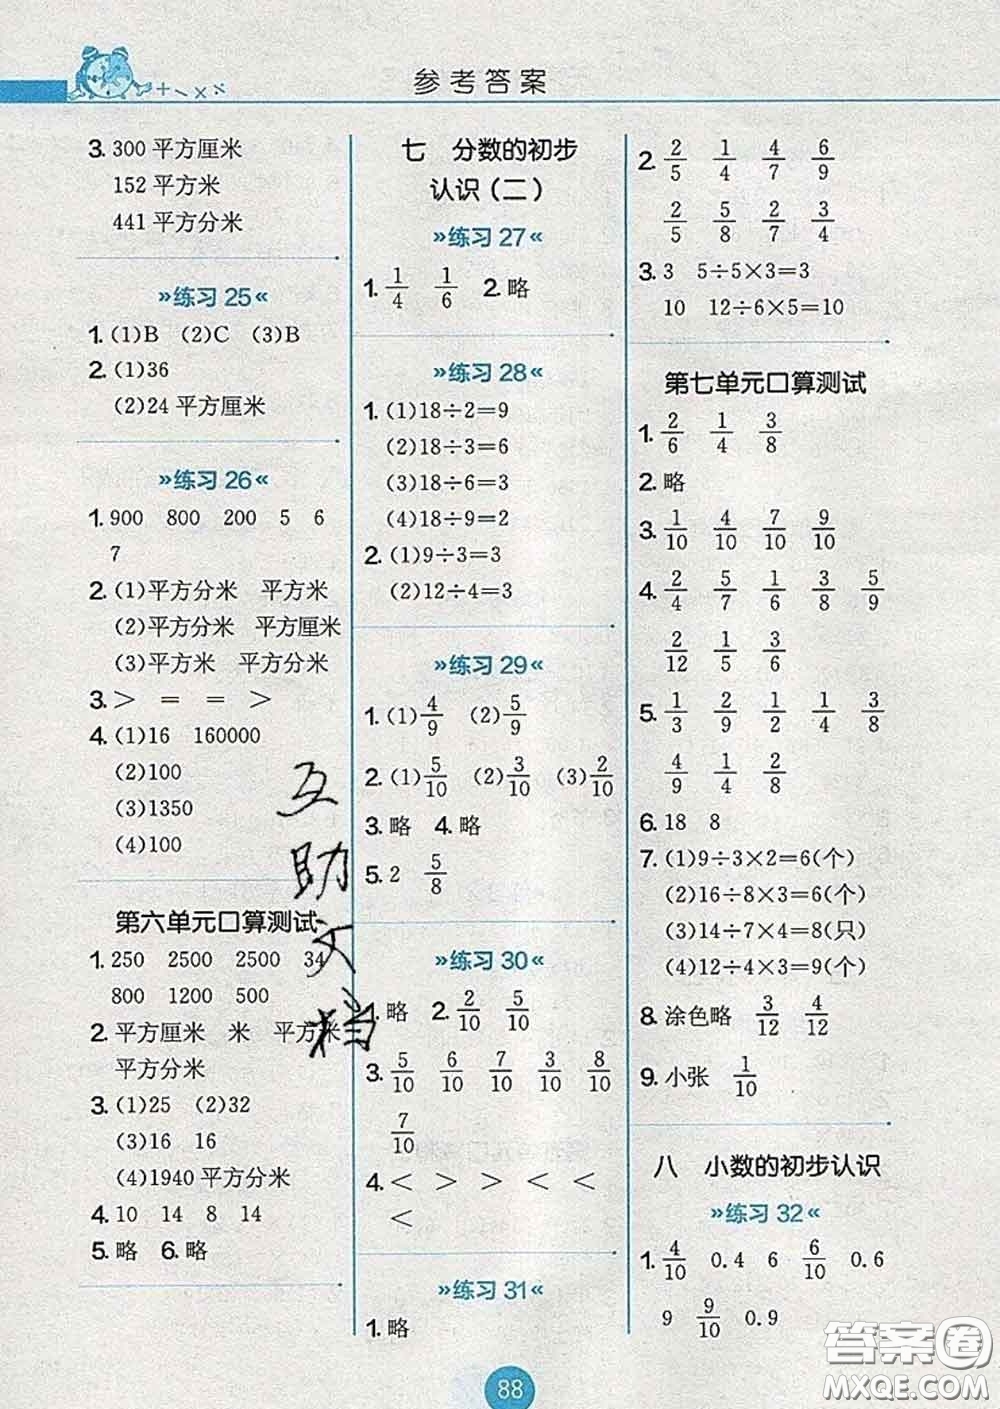 参考答案
3. 300平方厘米
152平方米
441平方分米
»练习25«
1. (1)B (2)C (3)B
2. (1)36
(2)24平方厘米
»练习26«
1. 900 800 200 5 6
7
2. (1)平方分米 平方米
(2)平方分米 平方厘米
(3)平方米 平方分米
3. > = = >
4. (1)16 160000
(2)100
(3)1350
(4)100
第六单元口算测试
1. 250 2500 2500 34
800 1200 500
2. 平方厘米 米 平方米
平方分米
3. (1)25 (2)32
(3)16 16
(4)1940平方分米
4. 10 14 8 14
5. 略 6. 略
七 分数的初步
认识(二)
»练习27«
1. 1/4 1/6 2. 略
»练习28«
1. (1)18÷2=9
(2)18÷3=6
(3)18÷6=3
(4)18÷9=2
2. (1)9÷3=3
(2)12÷4=3
»练习29«
1. (1)4/9 (2)5/9
2. (1)5/10 (2)3/10 (3)2/10
3. 略 4. 略
5. 2 5/8
»练习30«
1. 略 2. 2/10 5/10
3. 5/10 6/10 7/10 3/10 8/10
7/10
4. < > > < <
<
»练习31«
1. 略
2. 2/5 1/4 4/7 6/9
2/5 5/8 2/7 3/4
3. 3 5÷5×3=3
10 12÷6×5=10
第七单元口算测试
1. 2/6 1/4 3/8
2. 略
3. 1/10 4/10 7/10 9/10
4. 2/4 5/7 1/6 3/8 5/9
2/12 1/5 3/6
5. 1/3 2/9 1/2 1/4 3/8
4/9 1/4 2/8
6. 18 8
7. (1)9÷3×2=6(个)
(2)16÷8×3=6(个)
(3)14÷7×4=8(只)
(4)12÷4×3=9(个)
8. 涂色略 3/12 4/12
9. 小张 1/10
八 小数的初步认识
»练习32«
1. 4/10 0.4 6 6/10 0.6
9 9/10 0.9
互
助
文
档
88
答案圈
MXQE.COM